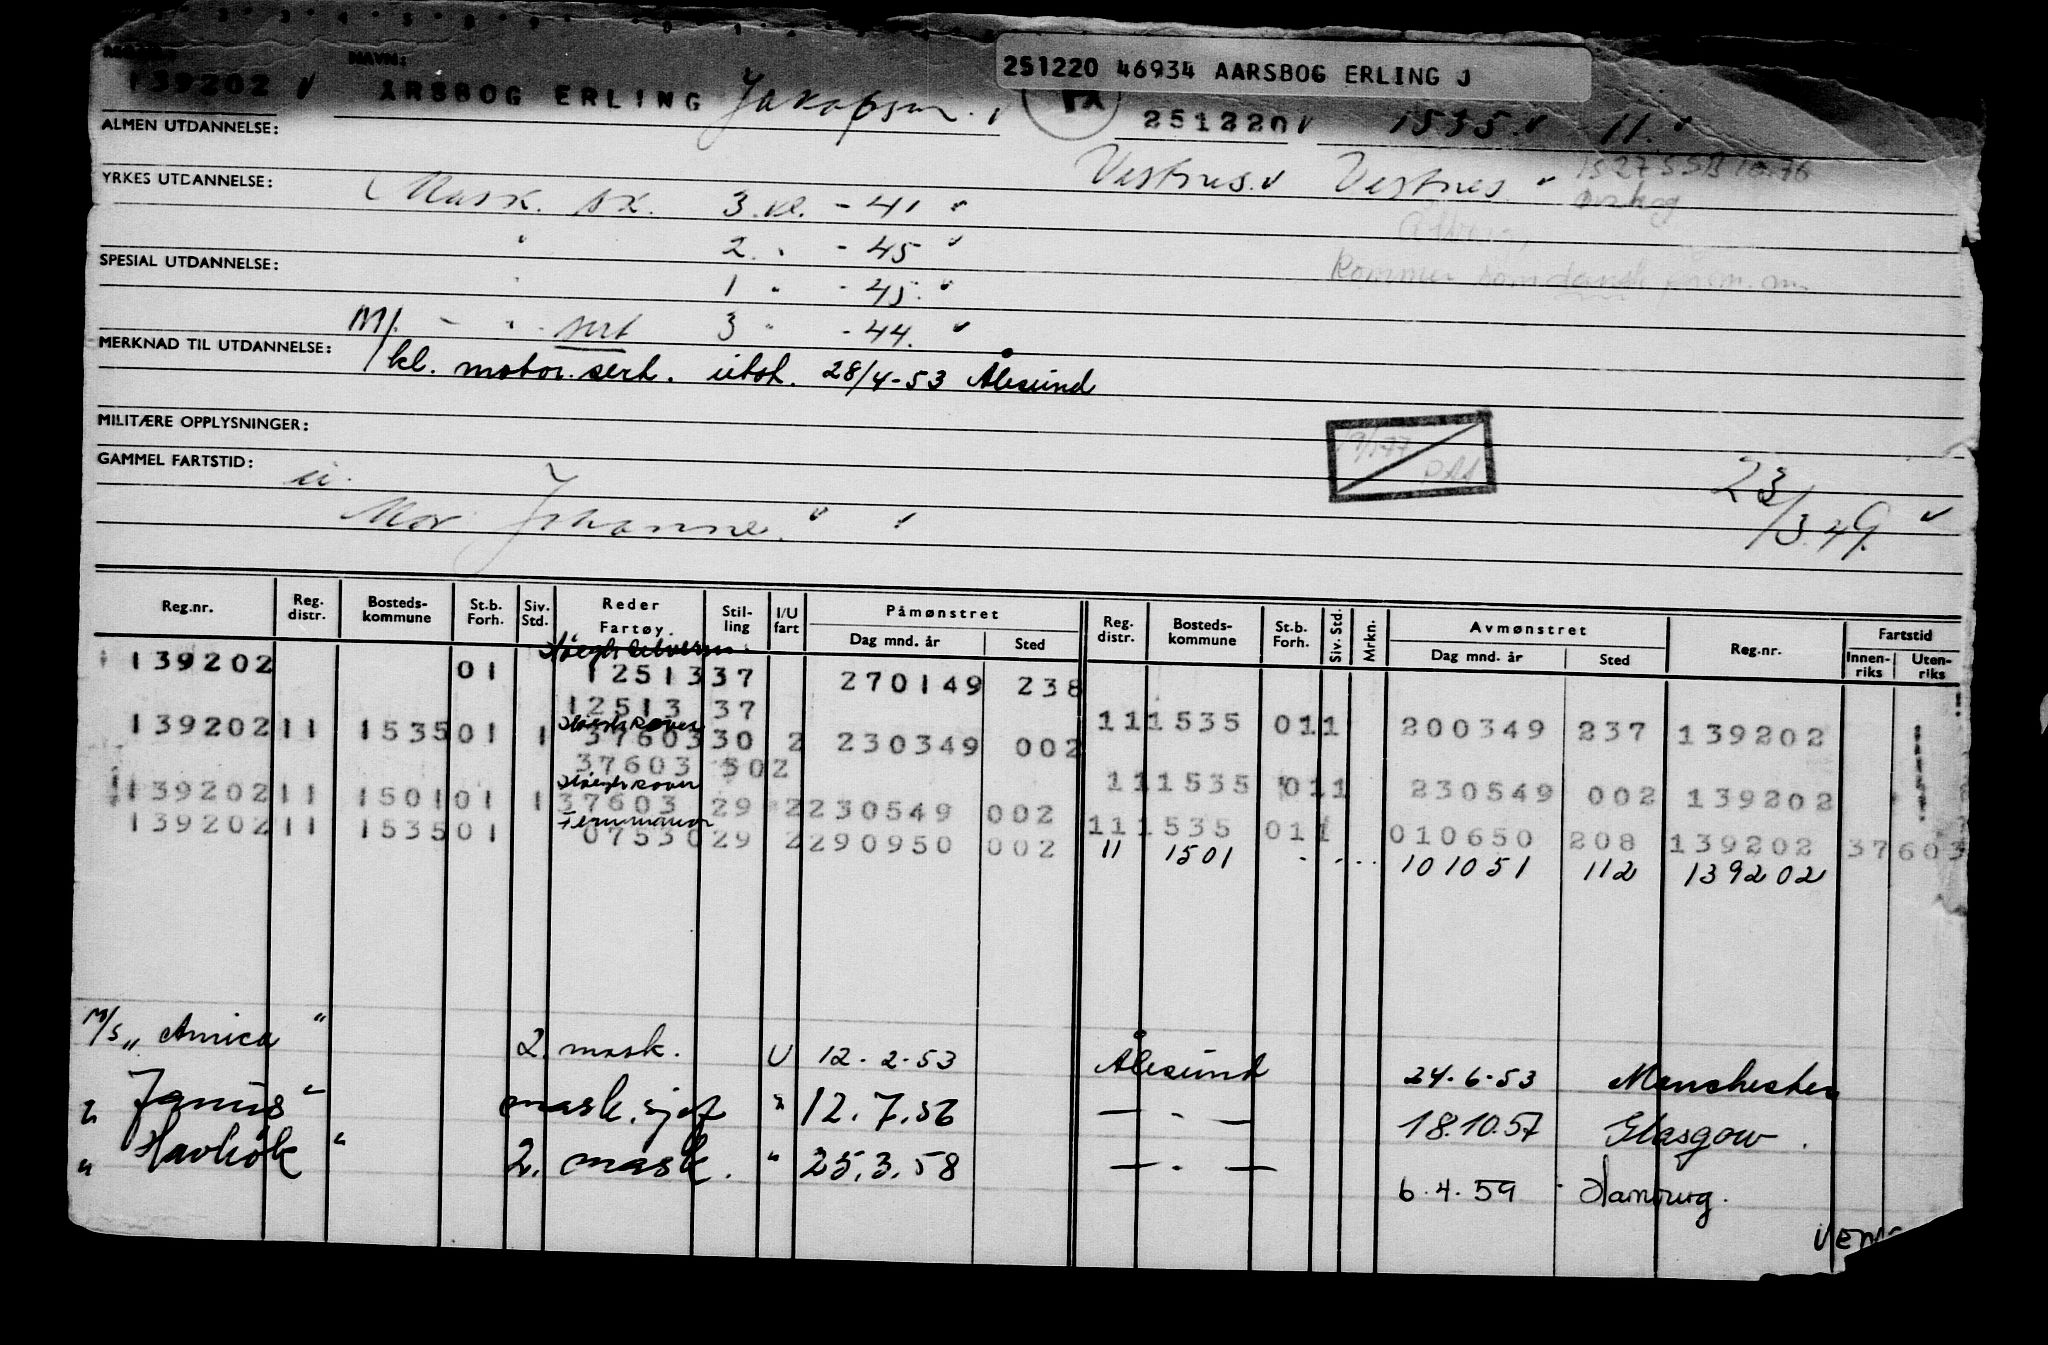 251220 46934 AARSBOG ERLING J
NAVN:
139202 ARSBOG ERLING Jakobsen. 251220 1535. 11.
ALMEN UTDANNELSE:
Vestnes. Vestnes
YRKES UTDANNELSE: Mask. sk. 3. kl. - 41 "
" 2. " - 45 "
kommer som dansk
SPESIAL UTDANNELSE: " 1 " - 45. "
M/. - " sert 3 " - 44. "
MERKNAD TIL UTDANNELSE: 1 kl. motor. sert. utst. 28/4-53 Ålesund
MILITÆRE OPPLYSNINGER:
GAMMEL FARTSTID: u.
23/3.49.
Mor Johanne.
Reg.nr. Reg. distr. Bosteds- kommune St.b. Forh. Siv. Std. Reder Fartøy. Stil- ling I/U fart Påmønstret Dag mnd. år Sted Reg. distr. Bosteds- kommune St.b. Forh. Siv. Std. Mrkn. Avmønstret Dag mnd. år Sted Reg.nr. Fartstid Innen- riks Uten- riks
139202 01 12513 37 270149 238
12513 37 11 1535 01 1 200349 237 139202
139202 11 1535 01 1 37603 30 2 230349 002
37603 302 11 1535 01 1 230549 002 139202
139202 11 1501 01 1 37603 29 2 230549 002
11 1535 01 1 010650 208 139202 37603
139202 11 1535 01 07530 29 2 290950 002
11 1501 - - ... 101051 112 139202
M/s „Amica" 2. mask. U 12.2.53 Ålesund 24.6.53 Manchester
" Janus" mask.sjef " 12.7.56 — . — 18.10.57 Glasgow.
" Havhök " 2. mask. " 25.3.58 — . — 6.4.59 Hamburg.